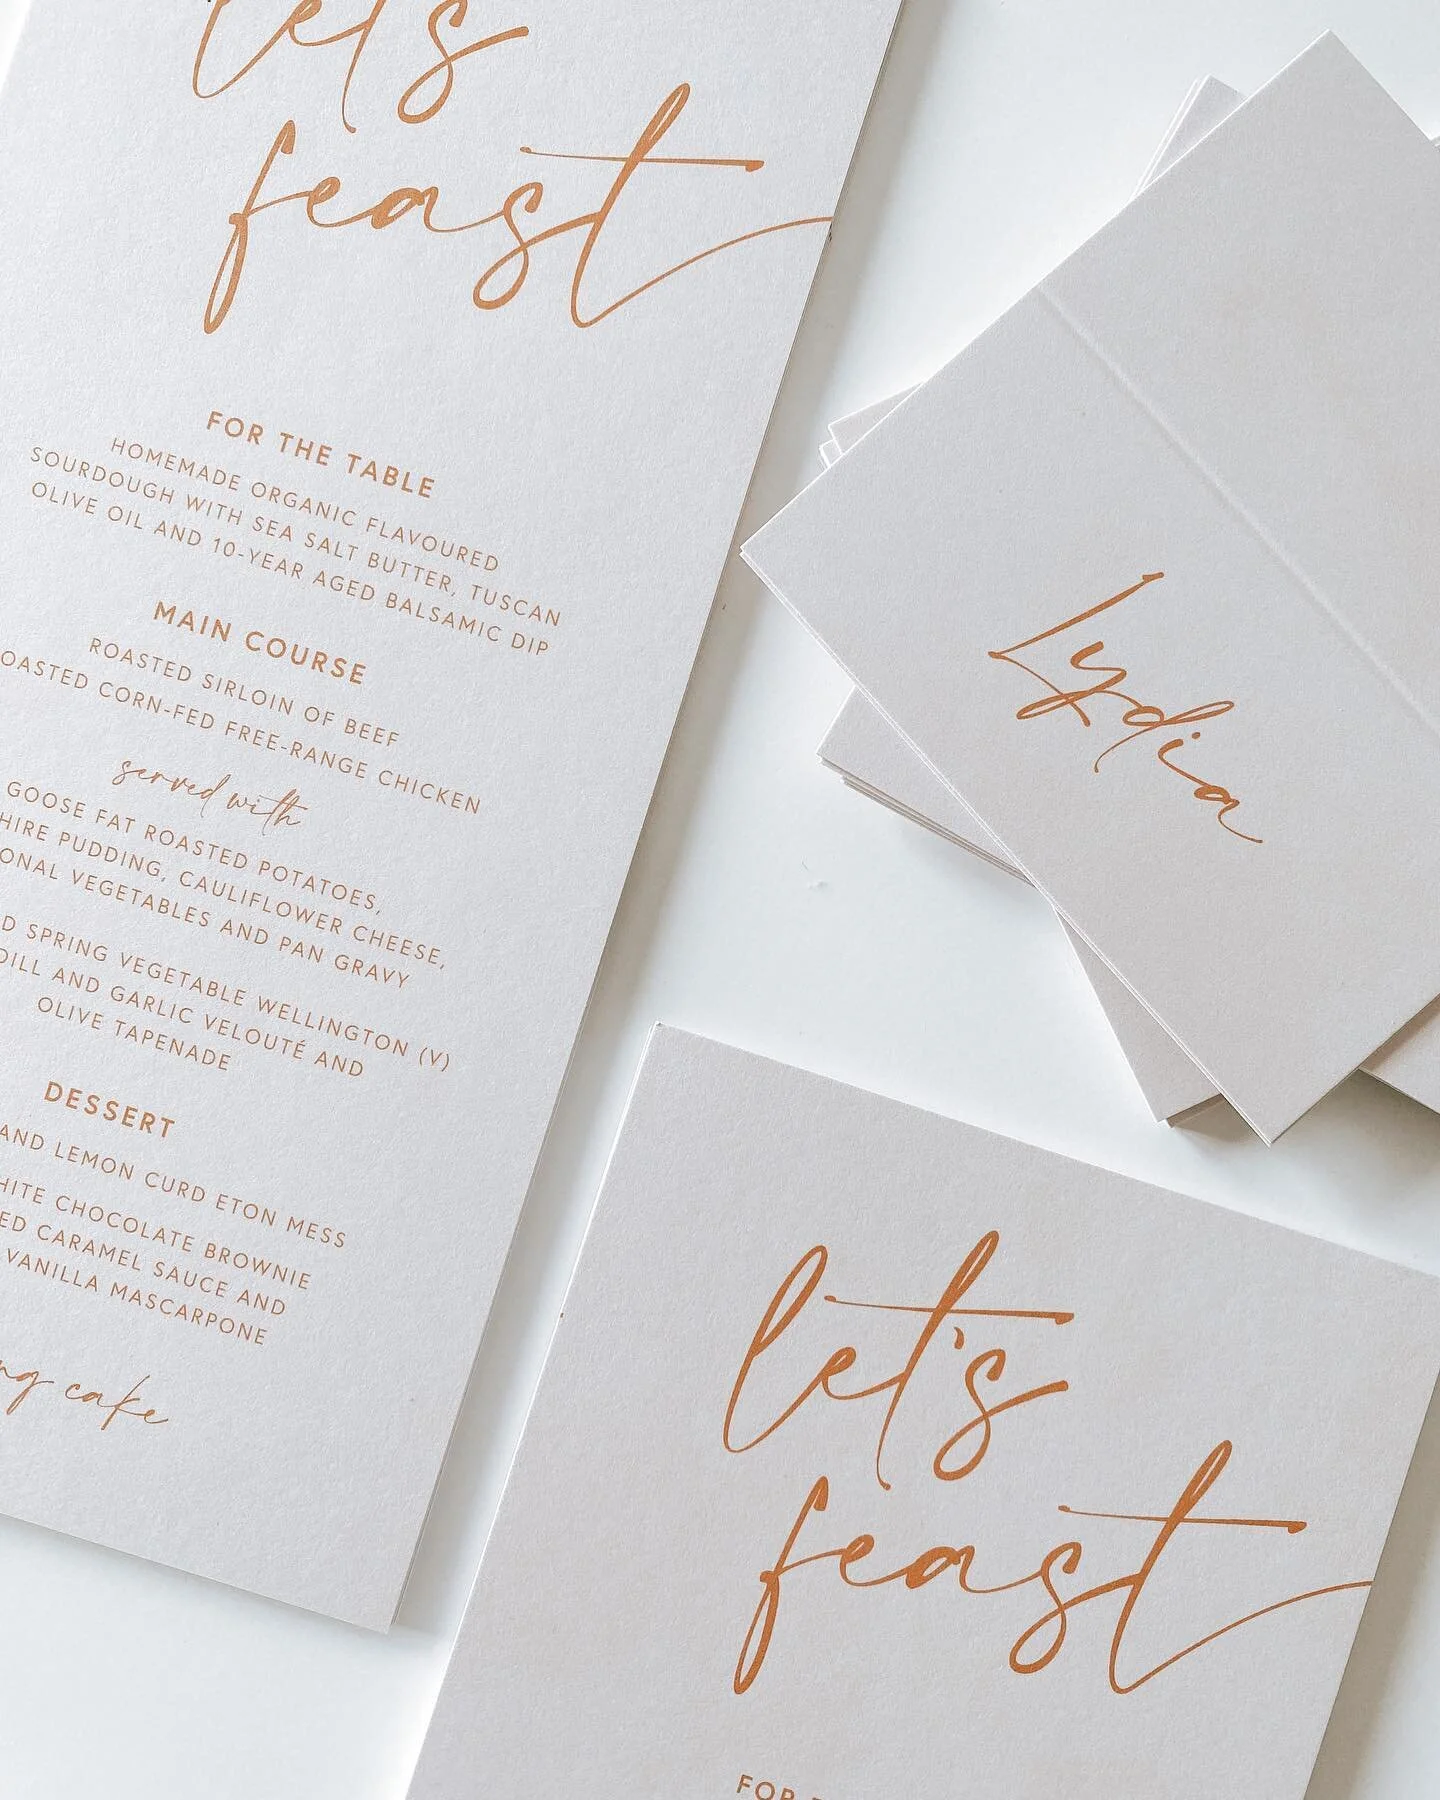 let's
feast
FOR THE TABLE
HOMEMADE ORGANIC FLAVOURED
SOURDOUGH WITH SEA SALT BUTTER, TUSCAN
OLIVE OIL AND 10-YEAR AGED BALSAMIC DIP
MAIN COURSE
ROASTED SIRLOIN OF BEEF
OASTED CORN-FED FREE-RANGE CHICKEN
served with
GOOSE FAT ROASTED POTATOES,
HIRE PUDDING, CAULIFLOWER CHEESE,
ONAL VEGETABLES AND PAN GRAVY
D SPRING VEGETABLE WELLINGTON (V)
DILL AND GARLIC VELOUTÉ AND
OLIVE TAPENADE
DESSERT
AND LEMON CURD ETON MESS
HITE CHOCOLATE BROWNIE
ED CARAMEL SAUCE AND
VANILLA MASCARPONE
ng cake
Lydia
let's
feast
FOR